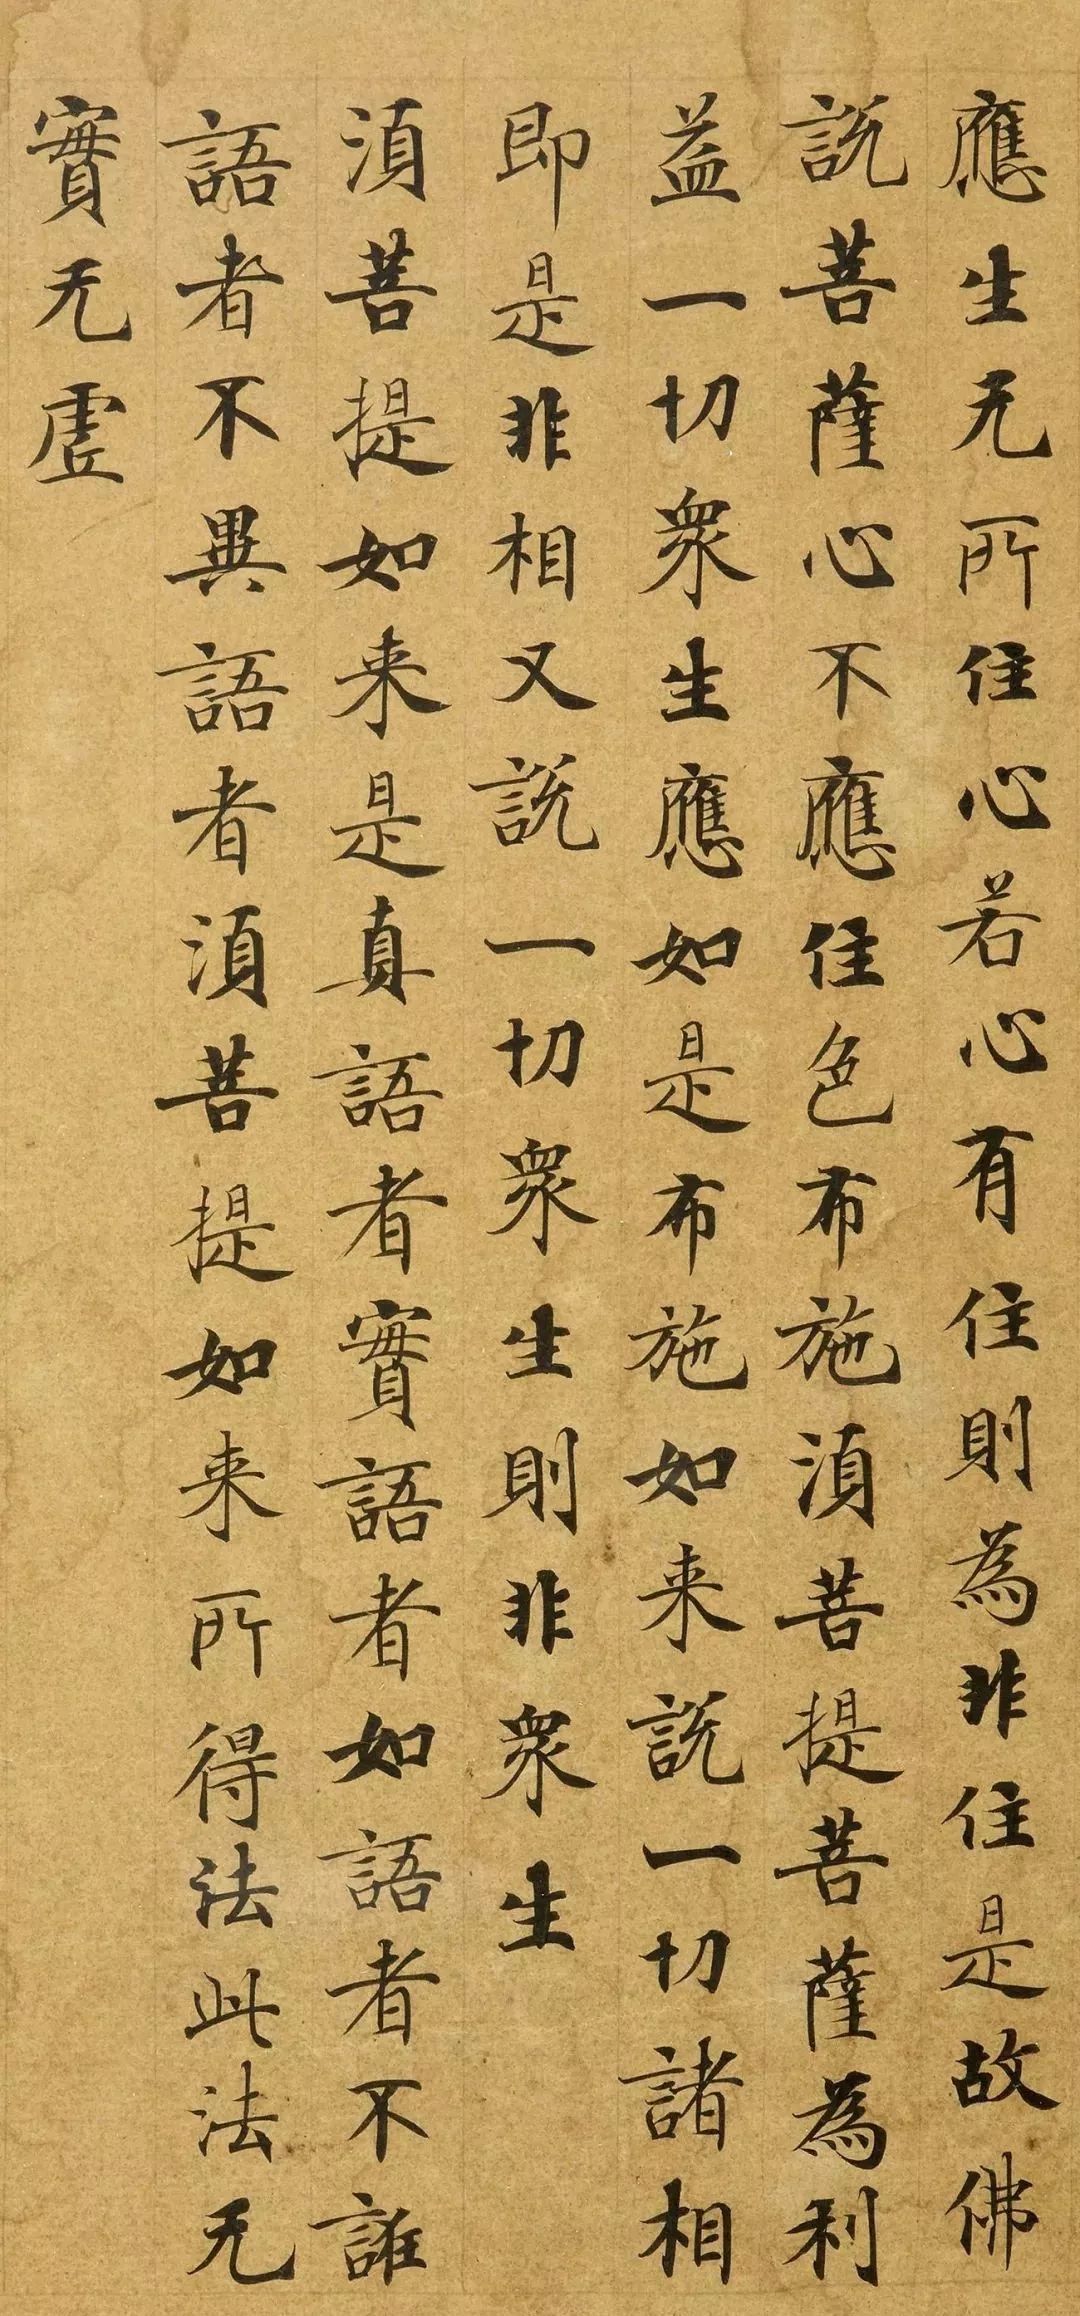 應生无所住心若心有住則為非住是故佛
說菩薩心不應住色布施湏菩提菩薩為利
益一切衆生應如是布施如来說一切諸相
即是非相又說一切衆生則非衆生
湏菩提如来是真語者實語者如語者不誑
語者不異語者湏菩提如来所得法此法无
實无虛